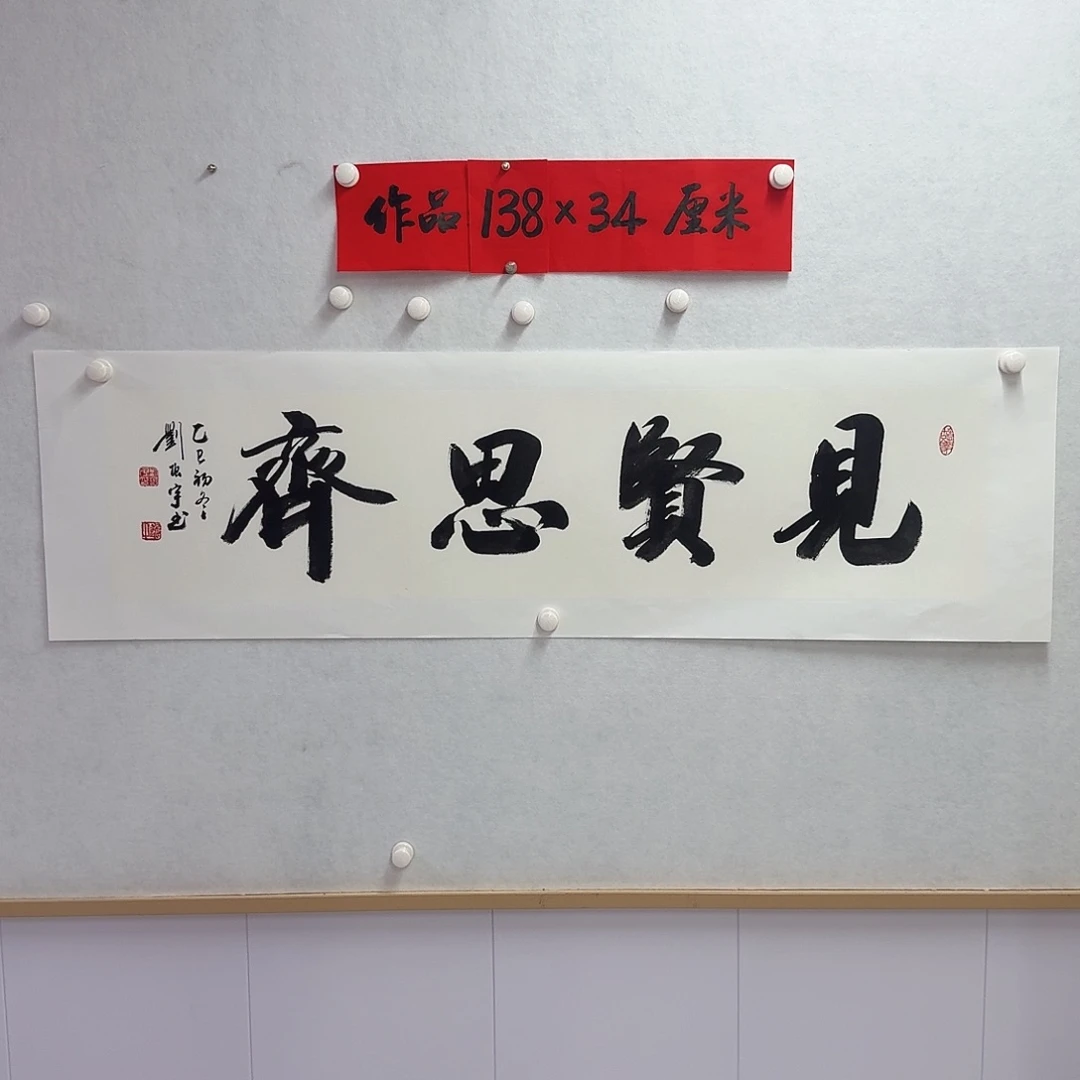 作品 138×34 厘米
見賢思齊
乙巳初冬
劉振宇書